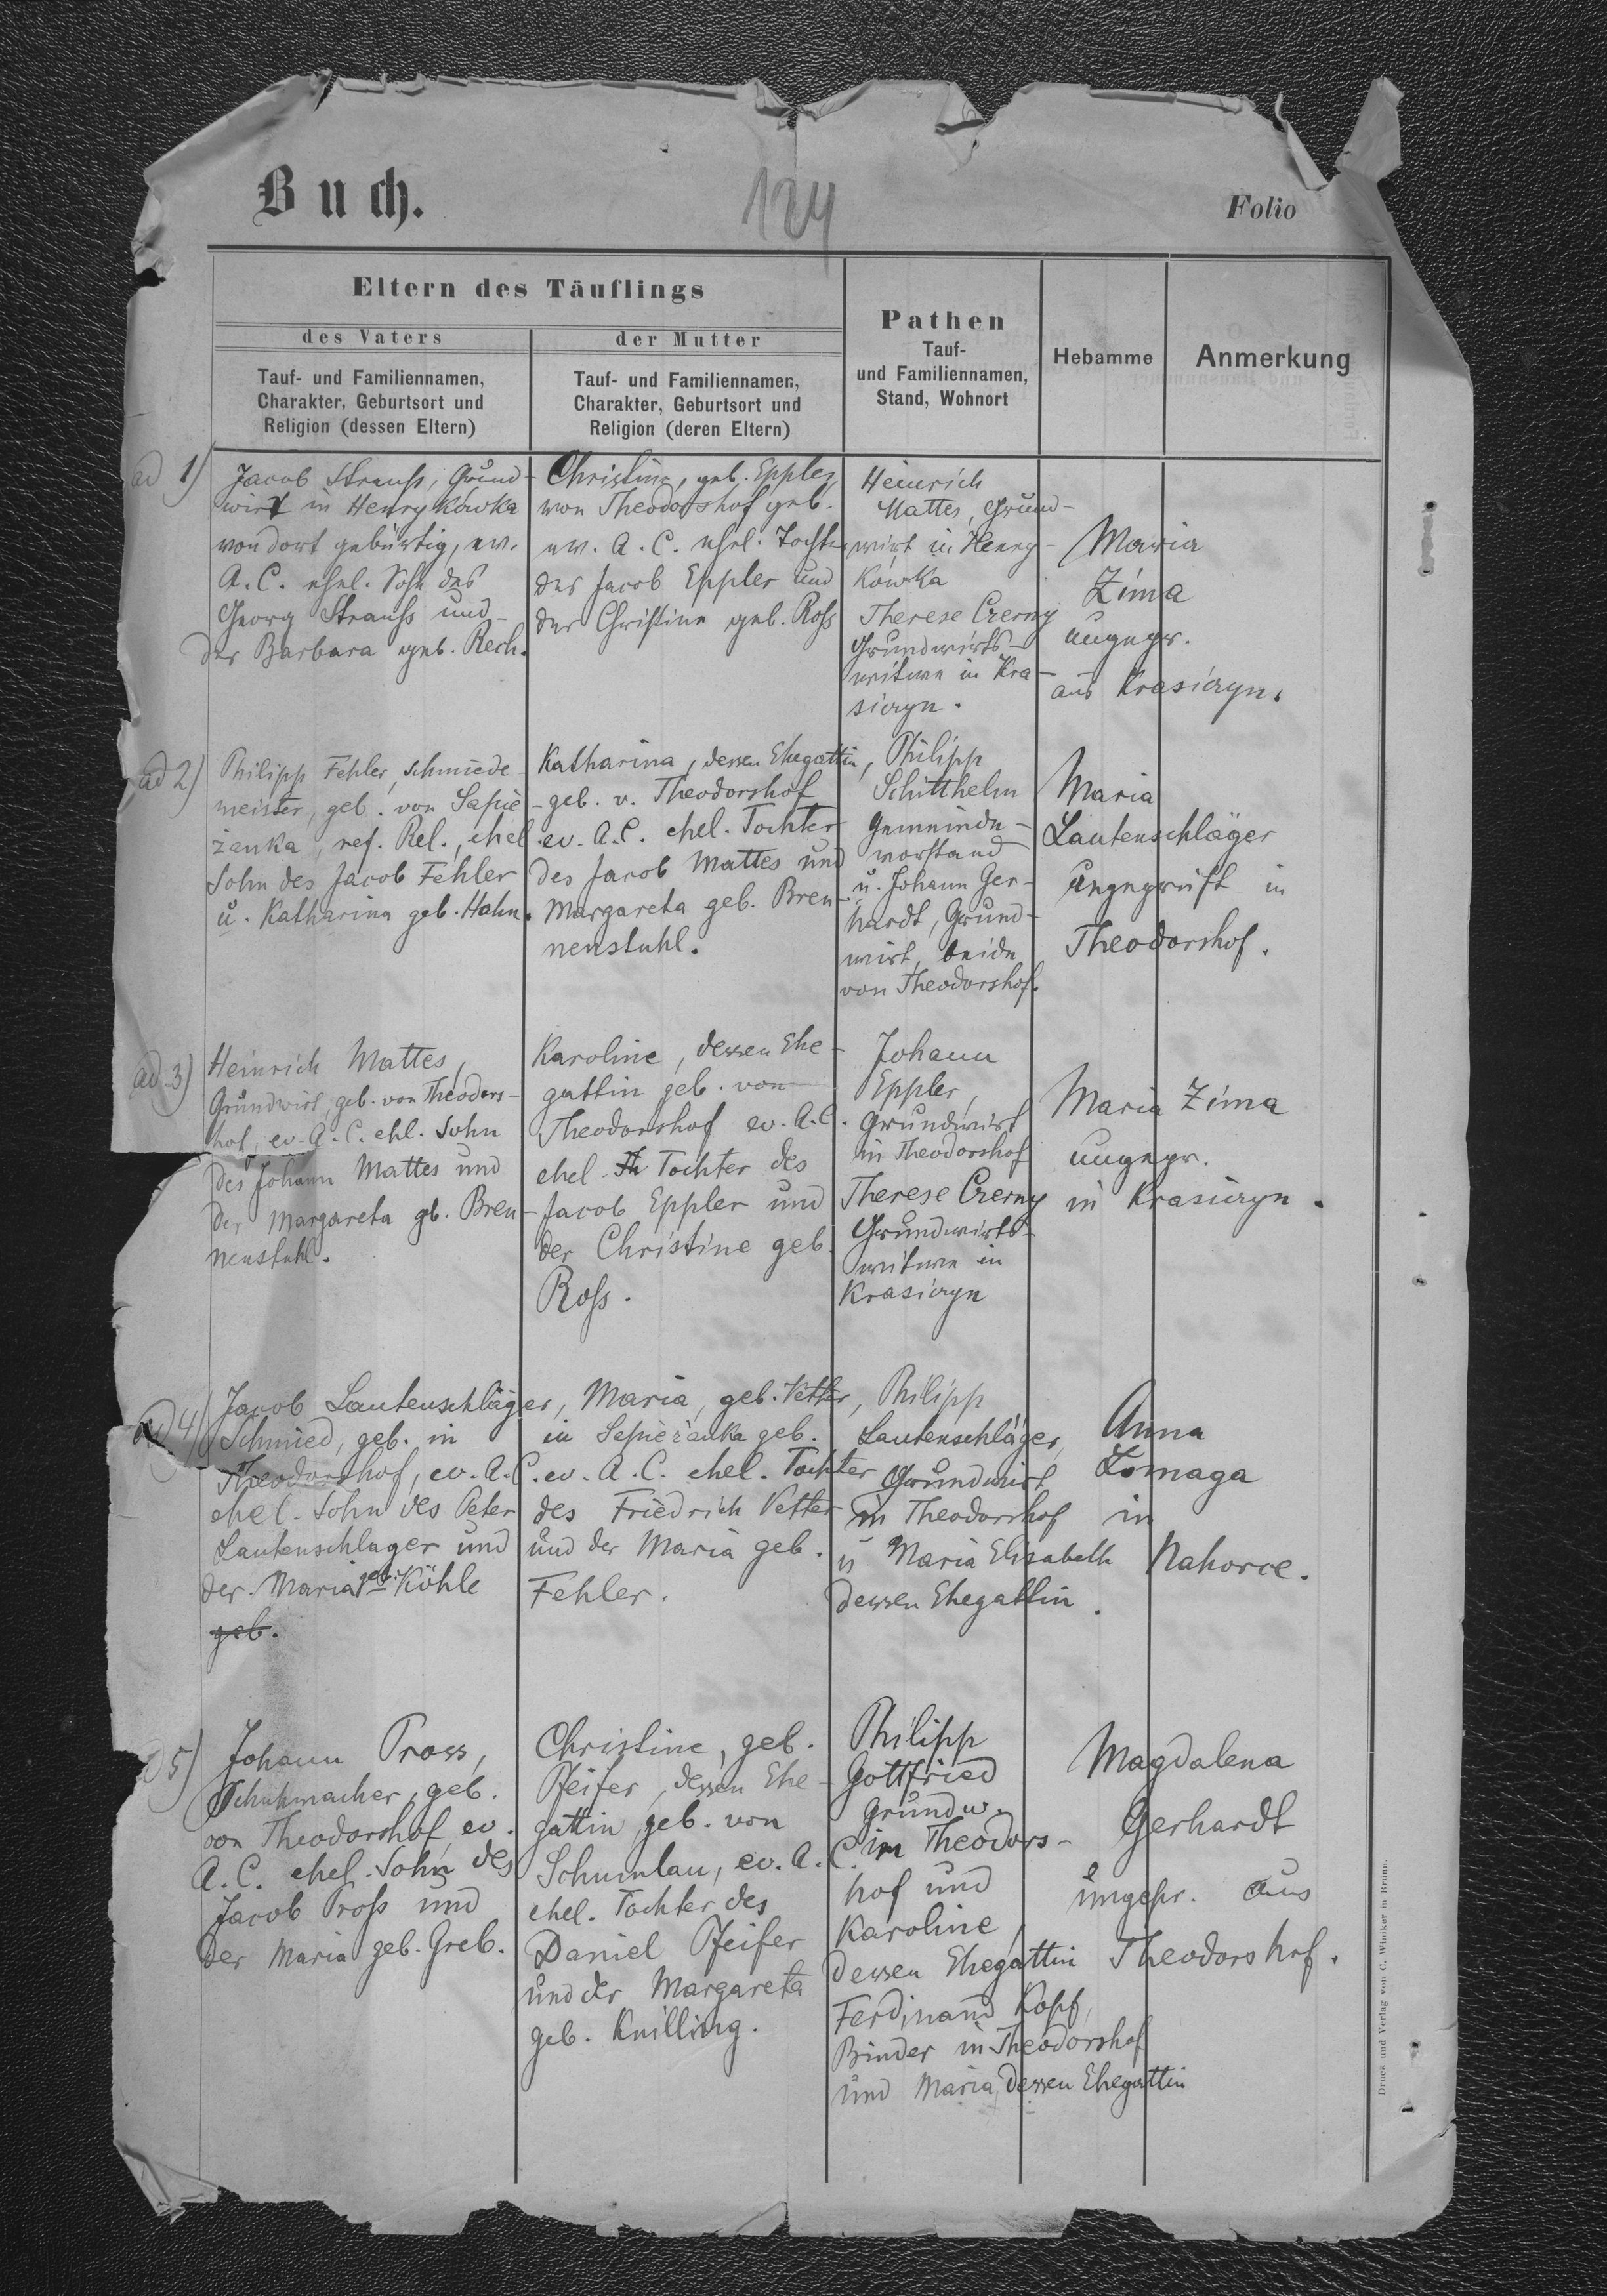 Buch.
124
Folio
Eltern des Täuflings
des Vaters
der Mutter
Tauf- und Familiennamen,
Charakter, Geburtsort und
Religion (dessen Eltern)
Tauf- und Familiennamen,
Charakter, Geburtsort und
Religion (deren Eltern)
Pathen
Tauf-
und Familiennamen,
Stand, Wohnort
Hebamme
Anmerkung
ad 1)
Jacob Strauß, Grund-
wirt in Henrykówka
von dort gebürtig, ev.
A. C. ehel. Sohn des
Georg Strauß und
der Barbara geb. Rech.
Christine, geb. Eppler,
von Theodorshof geb.
ev. A. C. ehel. Tochter
des Jacob Eppler und
der Christine geb. Roß
Heinrich
Mattes, Grund-
wirt in Henry-
kówka
Therese Czerny
Grundwirts-
witwe in Kra-
siczyn.
Maria
Zima
ungepr.
aus Krasiczyn.
ad 2)
Philipp Fehler, Schmiede-
meister, geb. von Sapie-
żanka, ref. Rel., ehel.
Sohn des Jacob Fehler
u. Katharina geb. Hahn.
Katharina, dessen Ehegattin,
geb. v. Theodorshof
ev. A. C. ehel. Tochter
des Jacob Mattes und
Margareta geb. Bren-
nenstuhl.
Philipp
Schitthelm
Gemeinde-
vorstand
u. Johann Ger-
hardt, Grund-
wirt, beide
von Theodorshof.
Maria
Lautenschläger
ungeprüft in
Theodorshof.
ad 3)
Heinrich Mattes,
Grundwirt, geb. von Theodors-
hof, ev. A. C. ehl. Sohn
des Johann Mattes und
der Margareta gb. Bren-
nenstuhl.
Karoline, dessen Ehe-
gattin geb. von
Theodorshof ev. A. C.
ehel. Th Tochter des
Jacob Eppler und
der Christine geb.
Roß.
Johann
Eppler,
Grundwirt
in Theodorshof
Therese Czerny
Grundwirts-
witwe in
Krasiczyn
Maria Zima
ungepr.
in Krasiczyn.
ad 4)
Jacob Lautenschläger,
Schmied, geb. in
Theodorshof, ev. A. C.
ehel. Sohn des Peter
Lautenschlager und
der Maria geb. Köhle
geb.
Maria, geb. Vetter,
in Sapieżanka geb.
ev. A. C. ehel. Tochter
des Friedrich Vetter
und der Maria geb.
Fehler.
Philipp
Lautenschläger,
Grundwirt
in Theodorshof
u. Maria Elisabeth
dessen Ehegattin.
Anna
Łomaga
in
Nahorce.
5)
Johann Pross,
Schuhmacher, geb.
von Theodorshof, ev.
A. C. ehel. Sohn des
Jacob Proß und
der Maria geb. Greb.
Christine, geb.
Pfeifer, dessen Ehe-
gattin, geb. von
Schumlau, ev. A. C.
ehel. Tochter des
Daniel Pfeifer
und der Margareta
geb. Knilling.
Philipp
Gottfried
Grundw.
in Theodors-
hof und
Karoline,
dessen Ehegattin
Ferdinand Kopf,
Binder in Theodorshof
und Maria, dessen Ehegattin
Magdalena
Gerhardt
ungepr. aus
Theodorshof.
Druck und Verlag von C. Winiker in Brünn.